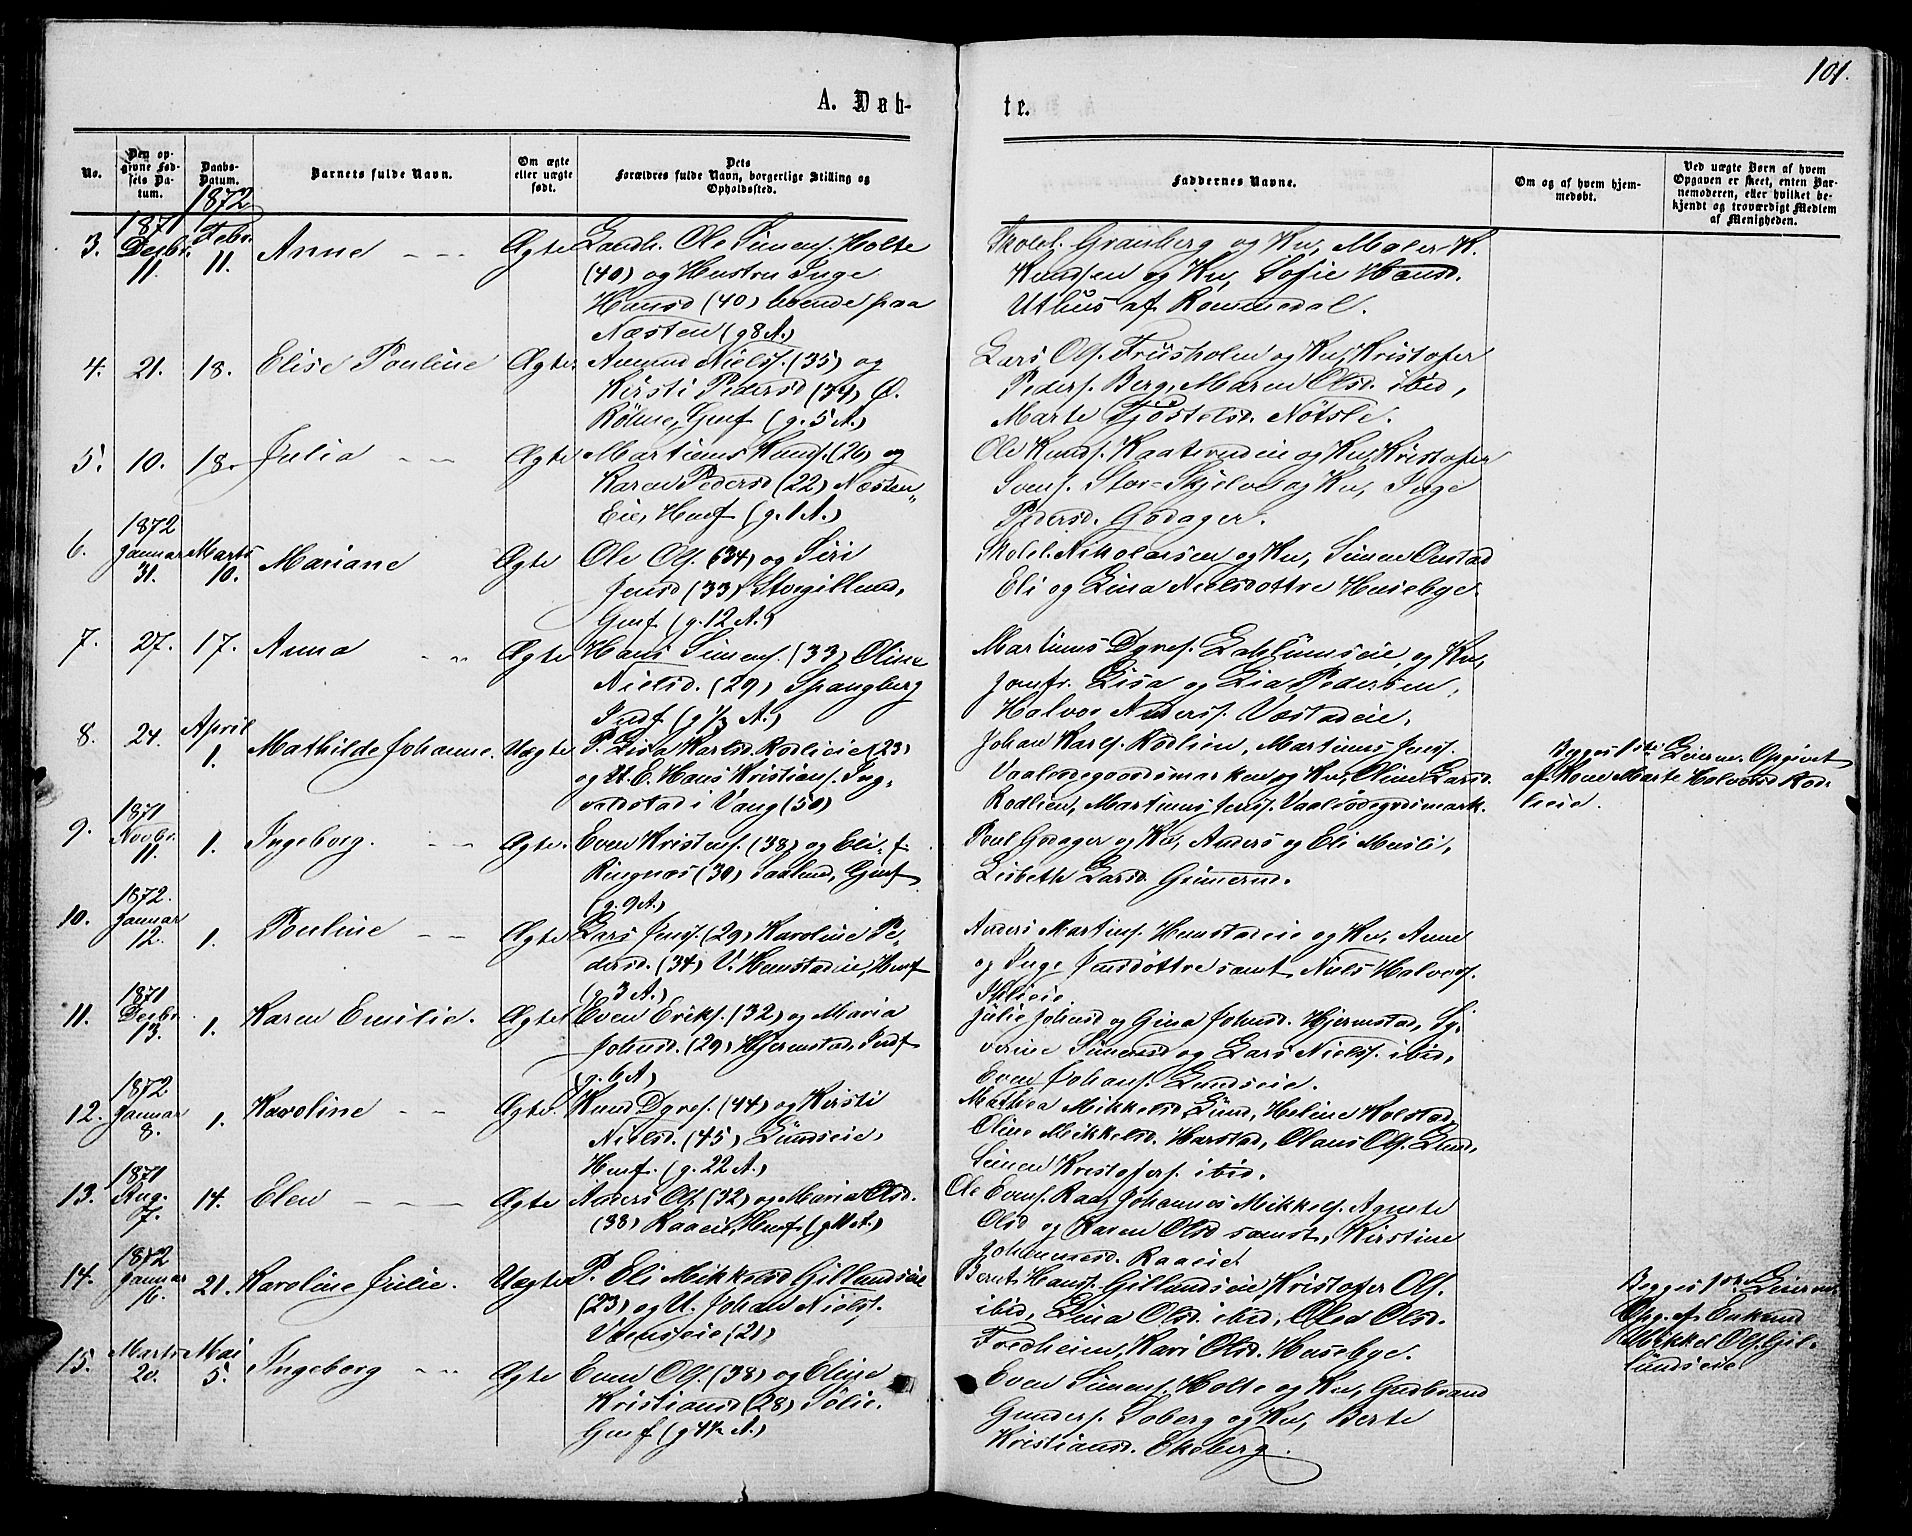 101.
A. Døb-
te.
No.
Den op-
givne Fød-
sels Da-
tum.
Daabs-
Datum.
Barnets fulde Navn.
Om ægte
eller uægte
født.
Dets
Forældres fulde Navn, borgerlige Stilling og
Opholdssted.
Faddernes Navne.
Om og af hvem hjem-
medøbt.
Ved uægte Børn af hvem
Opgaven er skeet, enten Bar-
nemoderen, eller hvilket be-
kjendt og troværdigt Medlem
af Menigheden.
1871 1872
3. Desbr. 11. Febr. 11. Anne - - Ægte
Landh. Ole Simens. Holte
(40) og Hustru Inge
(40) boende paa
Næsten (g 8 A.)
Skolel. Gransberg og Ku, Maler K.
Knudsen og Ku, Sofie Hansd.
Uthus af Rommedal.
4. 21. 18. Elise Pouline Ægte.
Amund Nielss. (35) og
Kirsti Pedersd (34) Ø.
(g. 5 A.)
Lars Ols. Friisholm og Ku, Kristofer
Peders. Berg, Maren Olsd. ibid,
Marte
5. 10. 18. Julia - - Ægte
Martinus Knuds. (26) og
Karen Pedersd (22) Næsten
Eie, Husf (g. 1 A.)
Ole Knuds. og Ku, Kristofer
Svens. Stor-Skjelve og Ku, Inge
Pedersd. Godager.
1872
6. Januar 31. Marts 10. Mariane Ægte
Ole Ols. (34) og Siri
Jensd (33) Storgillund,
Gmf. (g. 12 A.)
Skolel. Nikolaisen og Ku, Simen Onstad
Eli og Lina Nielsdøttre Husebye
7. 27. 17. Anna - - Ægte
Hans Simens. (33) Oline
Nielsd. (29) Spangberg
Indf (g 1/3 A.)
Martinus Dyres. og Ku,
Jomfr. Lisa og Lia Pedersen,
Halvor Anders. Væstadeie.
8. 24. April 1. Mathilde Johanne. Uægte
P. Lisa Karlsd. Rodlieie (23)
og U. E. Hans Kristians. Ing-
valdstad i Vang (50)
Johan Karls. Rodlien, Martinus Jens.
og Ku, Oline Larsd.
Rodlien, Martinus Jens.
Begges 1ste Leierm. Opgivet
af Kone Marte Halvorsd. Rod-
lieie.
1871
9. Novbr. 11. 1. Ingeborg. - - Ægte.
Even Kristens. (38) og Eli, f.
Ringnæs (30) Gmf
(g. 9 A.)
Poul Godager og Ku, Anders og Eli Musli,
Lisbeth Larsd. Grimerud.
1872.
10. Januar 12. 1. Pouline - - Ægte
Lars Jens. (29) Karoline Pe-
dersd. (34) V. Hemstadeie, Husf
(g. 3 A.)
Anders Martins. Hemstadeie og Ku, Anne
og Inge Jensdøttre samt Niels Halvors.
1871
11. Desbr. 13. 1. Karen Emilie. Ægte
Even Eriks. (32) og Maria
Johnsd. (29) Hjermstad, Indf
(g. 6 A)
Julie Johnsd og Gina Johnsd. Hjermstad, Sy-
verine Simensd og Lars Niels. ibid,
Even Johans. Lundseie.
1872
12. Januar 8. 1. Karoline - - Ægte.
Knud Dyres. (44) og Kirsti
Nielsd. (45) Lundseie,
Husf. (g. 22 A.)
Mathea Mikkelsd. Lund, Heline Kolstad,
Oline Mikkelsd. Harstad, Olaus Ols. Lund,
Simen Kristofers. ibid.
1871
13. Aug. 7. 14. Elen - - - Ægte
Anders Ols. (32) og Maria Olsd.
(38) Raaeie, Husf. (g 11 A.)
Ole Evens. Raa, Johannes Mikkels. Agnete
Olsd og Karen Olsd samt, Kirstine
Johannesd. Raaeie.
1872
14. Januar 16. 21. Karoline Julie. Uægte
P. Eli Mikkelsd Gillundseie
(23) og U. Johan Niels.
(21)
Bernt Hans. Gillundseie, Kristofer Ols.
ibid, Lina Olsd. ibid, Olea Olsd.
Fredlieien, Kari Olsd. Husebye.
Begges 1ste Leierm.
Opg. af Enkemd
Mikkel Ols. Gil-
lundseie
15. Marts 20. Mai 5. Ingeborg - - Ægte
Even Ols. (38) og Eline
Kristiansd (28) Sølie.
Gmf (g 4½ A.)
Even Simens. Holte og Ku, Gudbrand
Gunders. Soberg og Ku, Berte
Kristiansd. Ekeberg.